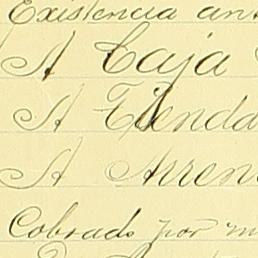 Existencia ant
A Caja
A Tienda
A Arren
Cobrado por m